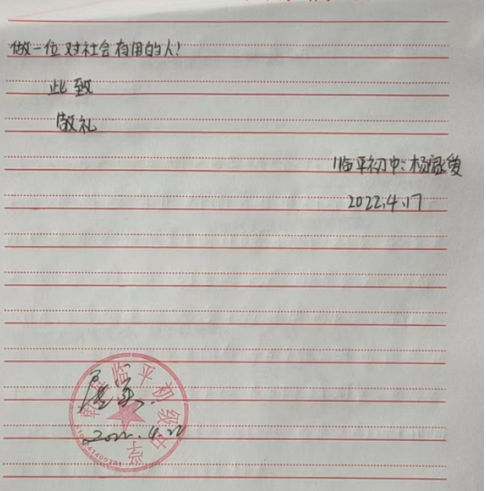 做一位对社会有用的人!
此致
敬礼
临平初中:杨
2022.4.17
临平初级中学
属实.
2022.4.22